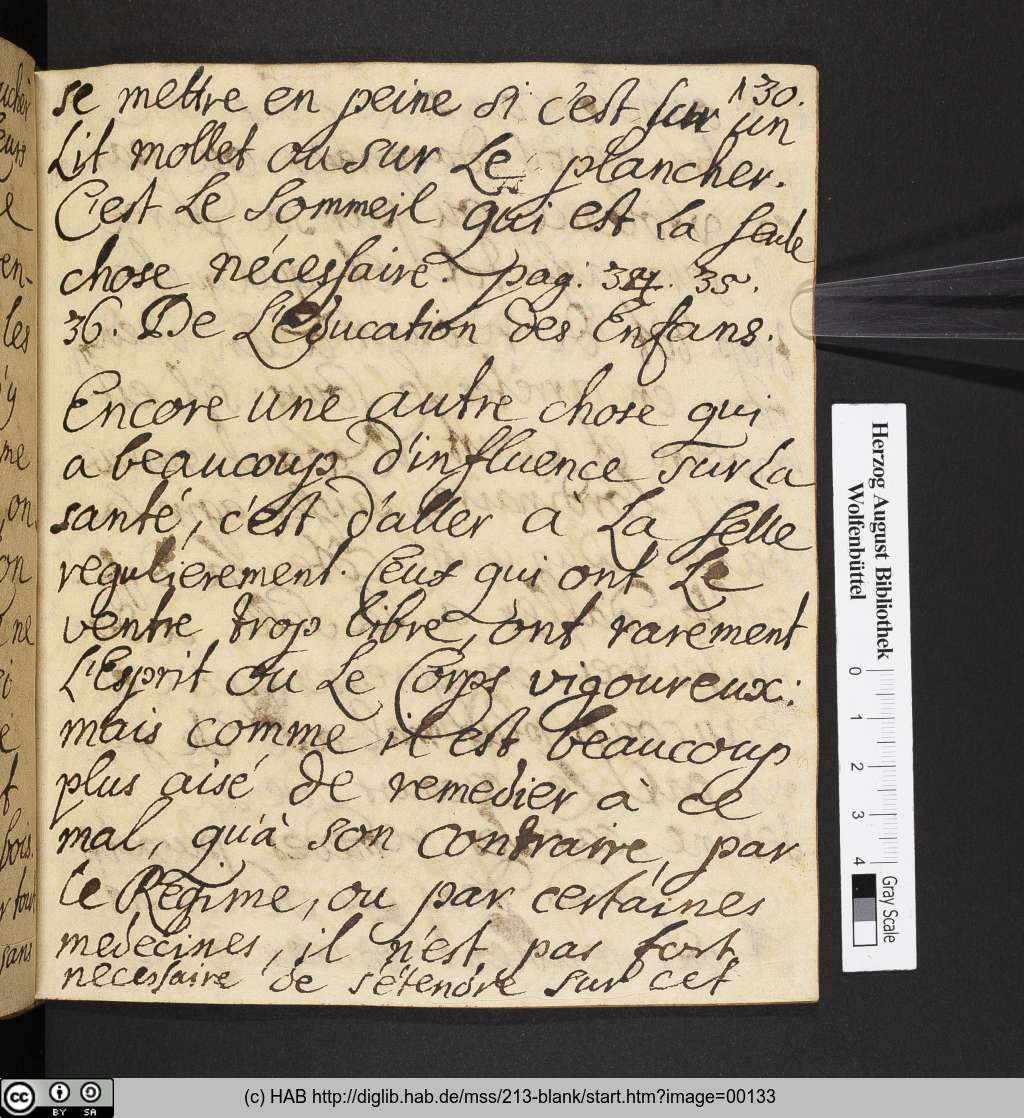 130.
se mettre en peine si c'est sur un
Lit mollet ou sur Le plancher.
C'est Le Sommeil qui est La seule
chose nécessaire. pag: 34. 35.
36. De L'Education des Enfans.
Encore une autre chose qui
a beaucoup d'influence sur La
santé, c'est d'aller à La selle
regulierement. Ceux qui ont Le
ventre trop libre, ont rarement
L'Esprit ou Le Corps vigoureux:
mais comme il est beaucoup
plus aisé de remedier à ce
mal, qu'à son contraire, par
le Régime, ou par certaines
medecines, il n'est pas fort
necessaire de s'étendre sur cet
Herzog August Bibliothek
Wolfenbüttel
0 1 2 3 4
Gray Scale
cc BY SA
(c) HAB http://diglib.hab.de/mss/213-blank/start.htm?image=00133